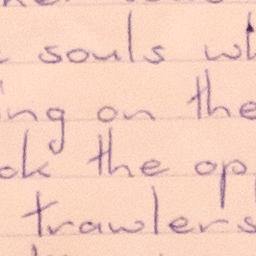 souls wh
ing on the
ok the op
trawlers